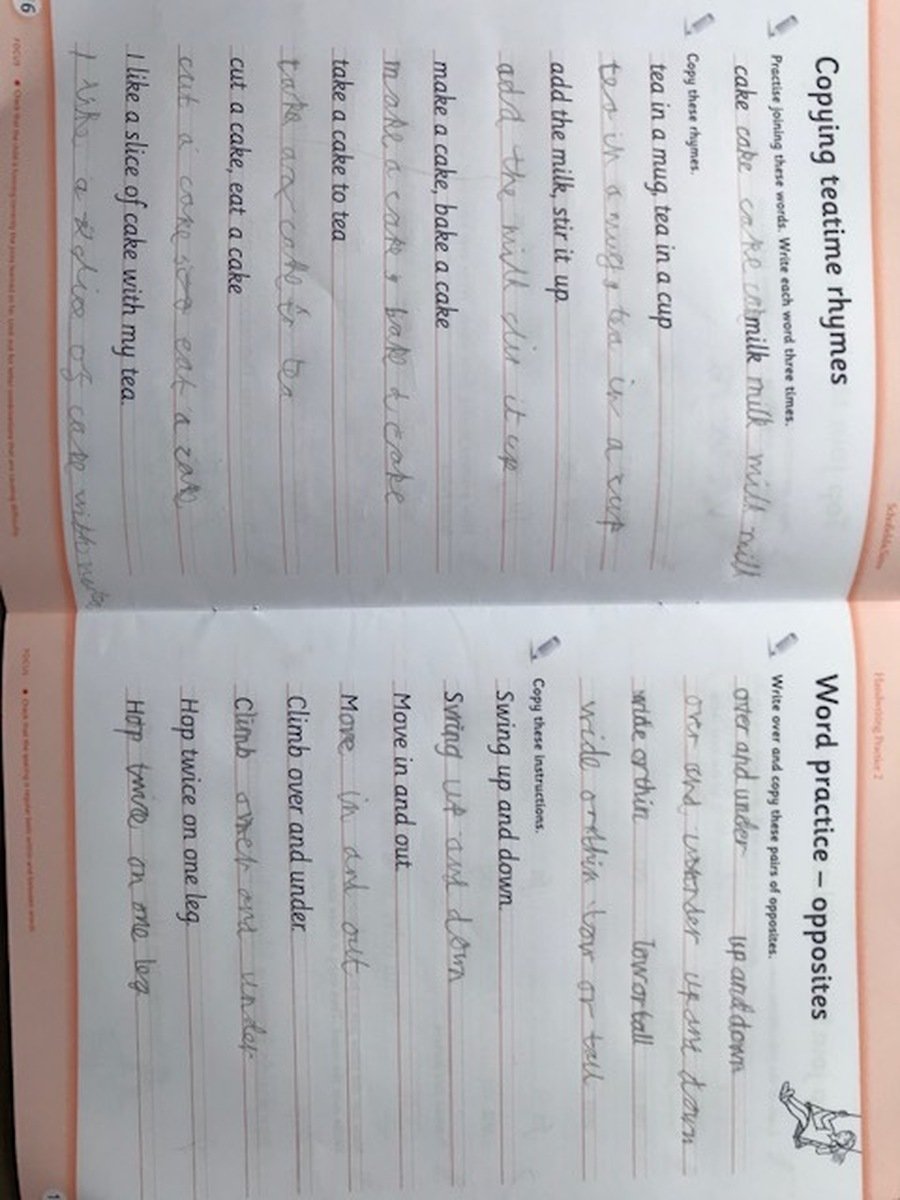 Copying teatime rhymes
Practise joining these words. Write each word three times.
cake cake cake milk milk milk milk
Copy these rhymes.
tea in a mug, tea in a cup
tea in a mug, tea in a cup
add the milk, stir it up
add the milk stir it up
make a cake, bake a cake
make a cake, bake a cake
take a cake to tea
take a cake to tea
cut a cake, eat a cake
cut a cake eat a cake
I like a slice of cake with my tea.
I like a slice of cake with my
6
FOCUS
Handwriting Practice 2
Word practice – opposites
Write over and copy these pairs of opposites.
over and under up and down
over and under up and down
wide or thin low or tall
wide or thin low or tall
Copy these instructions.
Swing up and down.
Swing up and down
Move in and out.
Move in and out
Climb over and under.
Climb over and under
Hop twice on one leg.
Hop twice on one leg
FOCUS • Check that the spacing is regular both within and between words.